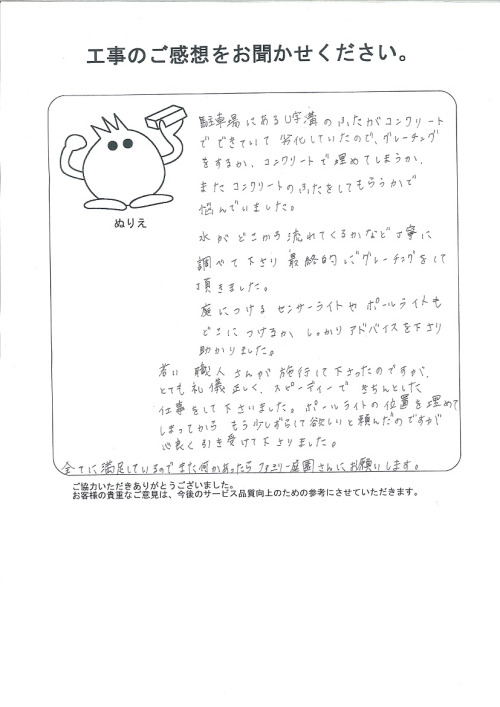 工事のご感想をお聞かせください。
駐車場にあるU字溝のふたがコンクリート
でできていて 劣化していたので、グレーチング
をするか、コンクリートで埋めてしまうか、
またコンクリートのふたをしてもらうかで
悩んでいました。
水がどこから流れてくるかなど丁寧に
調べて下さり 最終的にグレーチングをして
頂きました。
庭につける センサーライトや ポールライトも
どこにつけるか、しっかりアドバイスを下さり
助かりました。
若い 職人さんが 施行して下さったのですが、
とても礼儀正しく、スピーディーで きちんとした
仕事をして下さいました。ポールライトの位置を埋めて
しまってから もう少しずらして欲しいと頼んだのですが
心良く引き受けて下さりました。
全てに満足しているのでまた何かあったら ファミリー庭園さんにお願いします。
ぬりえ
ご協力いただきありがとうございました。
お客様の貴重なご意見は、今後のサービス品質向上のための参考にさせていただきます。